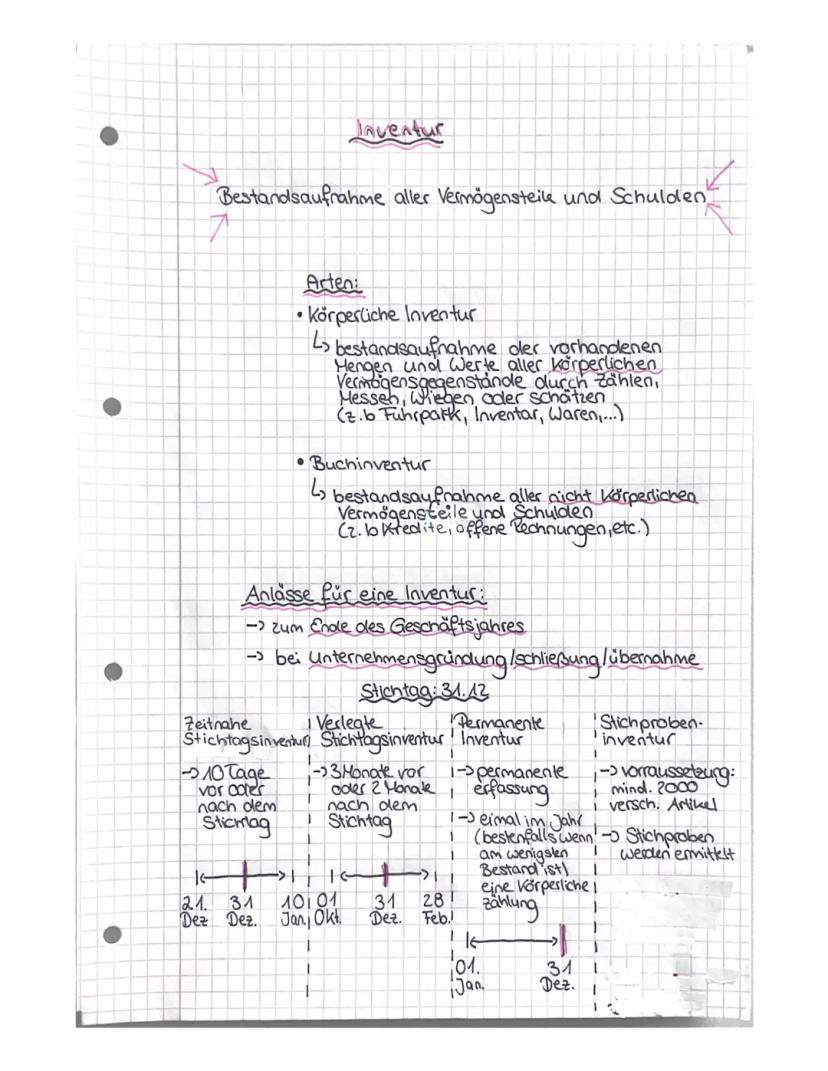 Inventur
Bestandsaufnahme aller Vermögensteile und Schulden
Arten:
• Körperliche Inventur
↳ bestandsaufnahme der vorhandenen
Mengen und Werte aller körperlichen
Vermögensgegenstände durch Zählen,
Messen, Wiegen oder schätzen
(z.b Fuhrpark, Inventar, Waren,...)
• Buchinventur
↳ bestandsaufnahme aller nicht körperlichen
Vermögensteile und Schulden
(z.b Kredite, offene Rechnungen, etc.)
Anlässe für eine Inventur:
-> zum Ende des Geschäftsjahres
-> bei Unternehmensgründung/schließung/übernahme
Stichtag: 31.12
Zeitnahe
Stichtagsinventur
-> 10 Tage
vor oder
nach dem
Stichtag
21. 31 10
Dez Dez. Jan.
Verlegte
Stichtagsinventur
-> 3 Monate vor
oder 2 Monate
nach dem
Stichtag
01 31 28
Okt. Dez. Feb.
Permanente
Inventur
-> permanente
erfassung
-> eimal im Jahr
(bestenfalls wenn
am wenigsten
Bestand ist)
eine Körperliche
zählung
01. 31
Jan. Dez.
Stichproben-
inventur
-> vorraussetzung:
mind. 2000
versch. Artikel
-> Stichproben
werden ermittelt